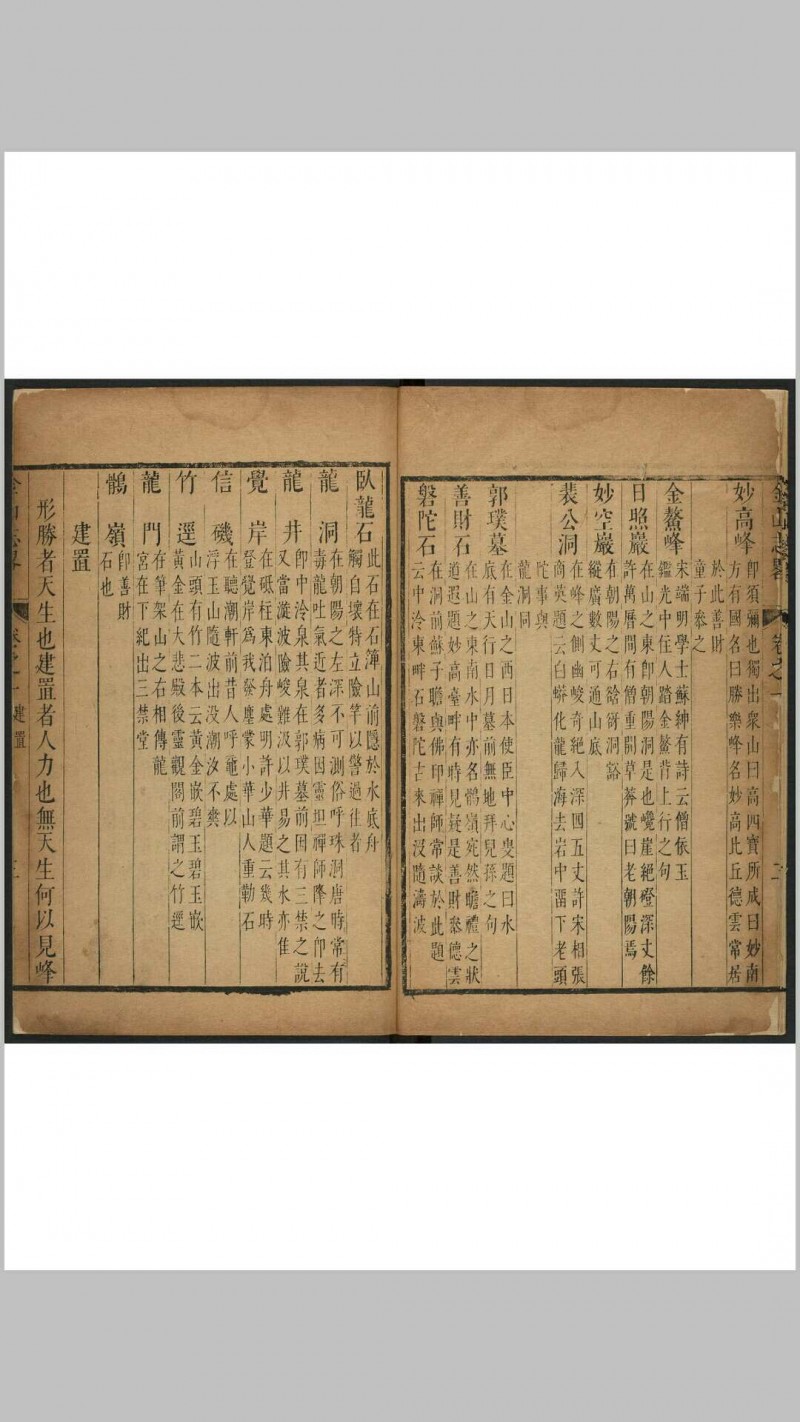 妙高峰 卽須彌也獨出衆山曰高四寶所成曰妙南
方有國名曰勝樂峰名妙高比丘德雲常居
於此善財
童子叅之
金鰲峰 宋端明學士蘇紳有詩云僧依玉
鑑光中住人踏金鰲背上行之句
日照巖 在山之東卽朝陽洞是也巉崖絕磴深丈餘
許萬曆間有僧重開草莽號曰老朝陽焉
妙空巖 在朝陽之右谽谺洞谿
縱廣數丈可通山底
裴公洞 在峰之側幽峻奇絕入深四五丈許宋相張
商英題云白蟒化龍歸海去岩中畱下老頭
陀事與
龍洞同
郭璞墓 在金山之西日本使臣中心叟題曰水
底有天行日月墓前無地拜兒孫之句
善財石 在山之東南水中亦名鶻嶺宛然瞻禮之狀
道遐題妙高臺畔有時見疑是善財叅德雲
磐陀石 在洞前蘇子瞻與佛印禪師常談於此題
云中泠東畔石磐陀古来出沒隨濤波
金山志畧 卷之一
臥龍石 此石在石簰山前隱於水底舟
觸自壞特立險竿以警過往者
龍洞 在朝陽之左深不可測俗呼珠洞唐時常有
毒龍吐氣近者多病因靈坦禪師降之卽去
龍井 卽中泠泉其泉在郭璞墓前因有三禁之說
又當漩波險峻難汲以井易之其水亦佳
覺岸 在砥柱東泊舟處明許少華題云幾時
登覺岸爲我發塵蒙小華山人重勒石
信磯 在聽潮軒前昔人呼黿處以
浮玉山隨波出没潮汐不爽
竹逕 山頭有竹二本云黃金嵌碧玉碧玉嵌
黃金在大悲殿後靈觀閣前謂之竹逕
龍門 在筆架山之右相傳龍
宮在下紀出三禁堂
鶻嶺 卽善財
石也
建置
形勝者天生也建置者人力也無天生何以見峰
金山志畧 卷之一 建置 三